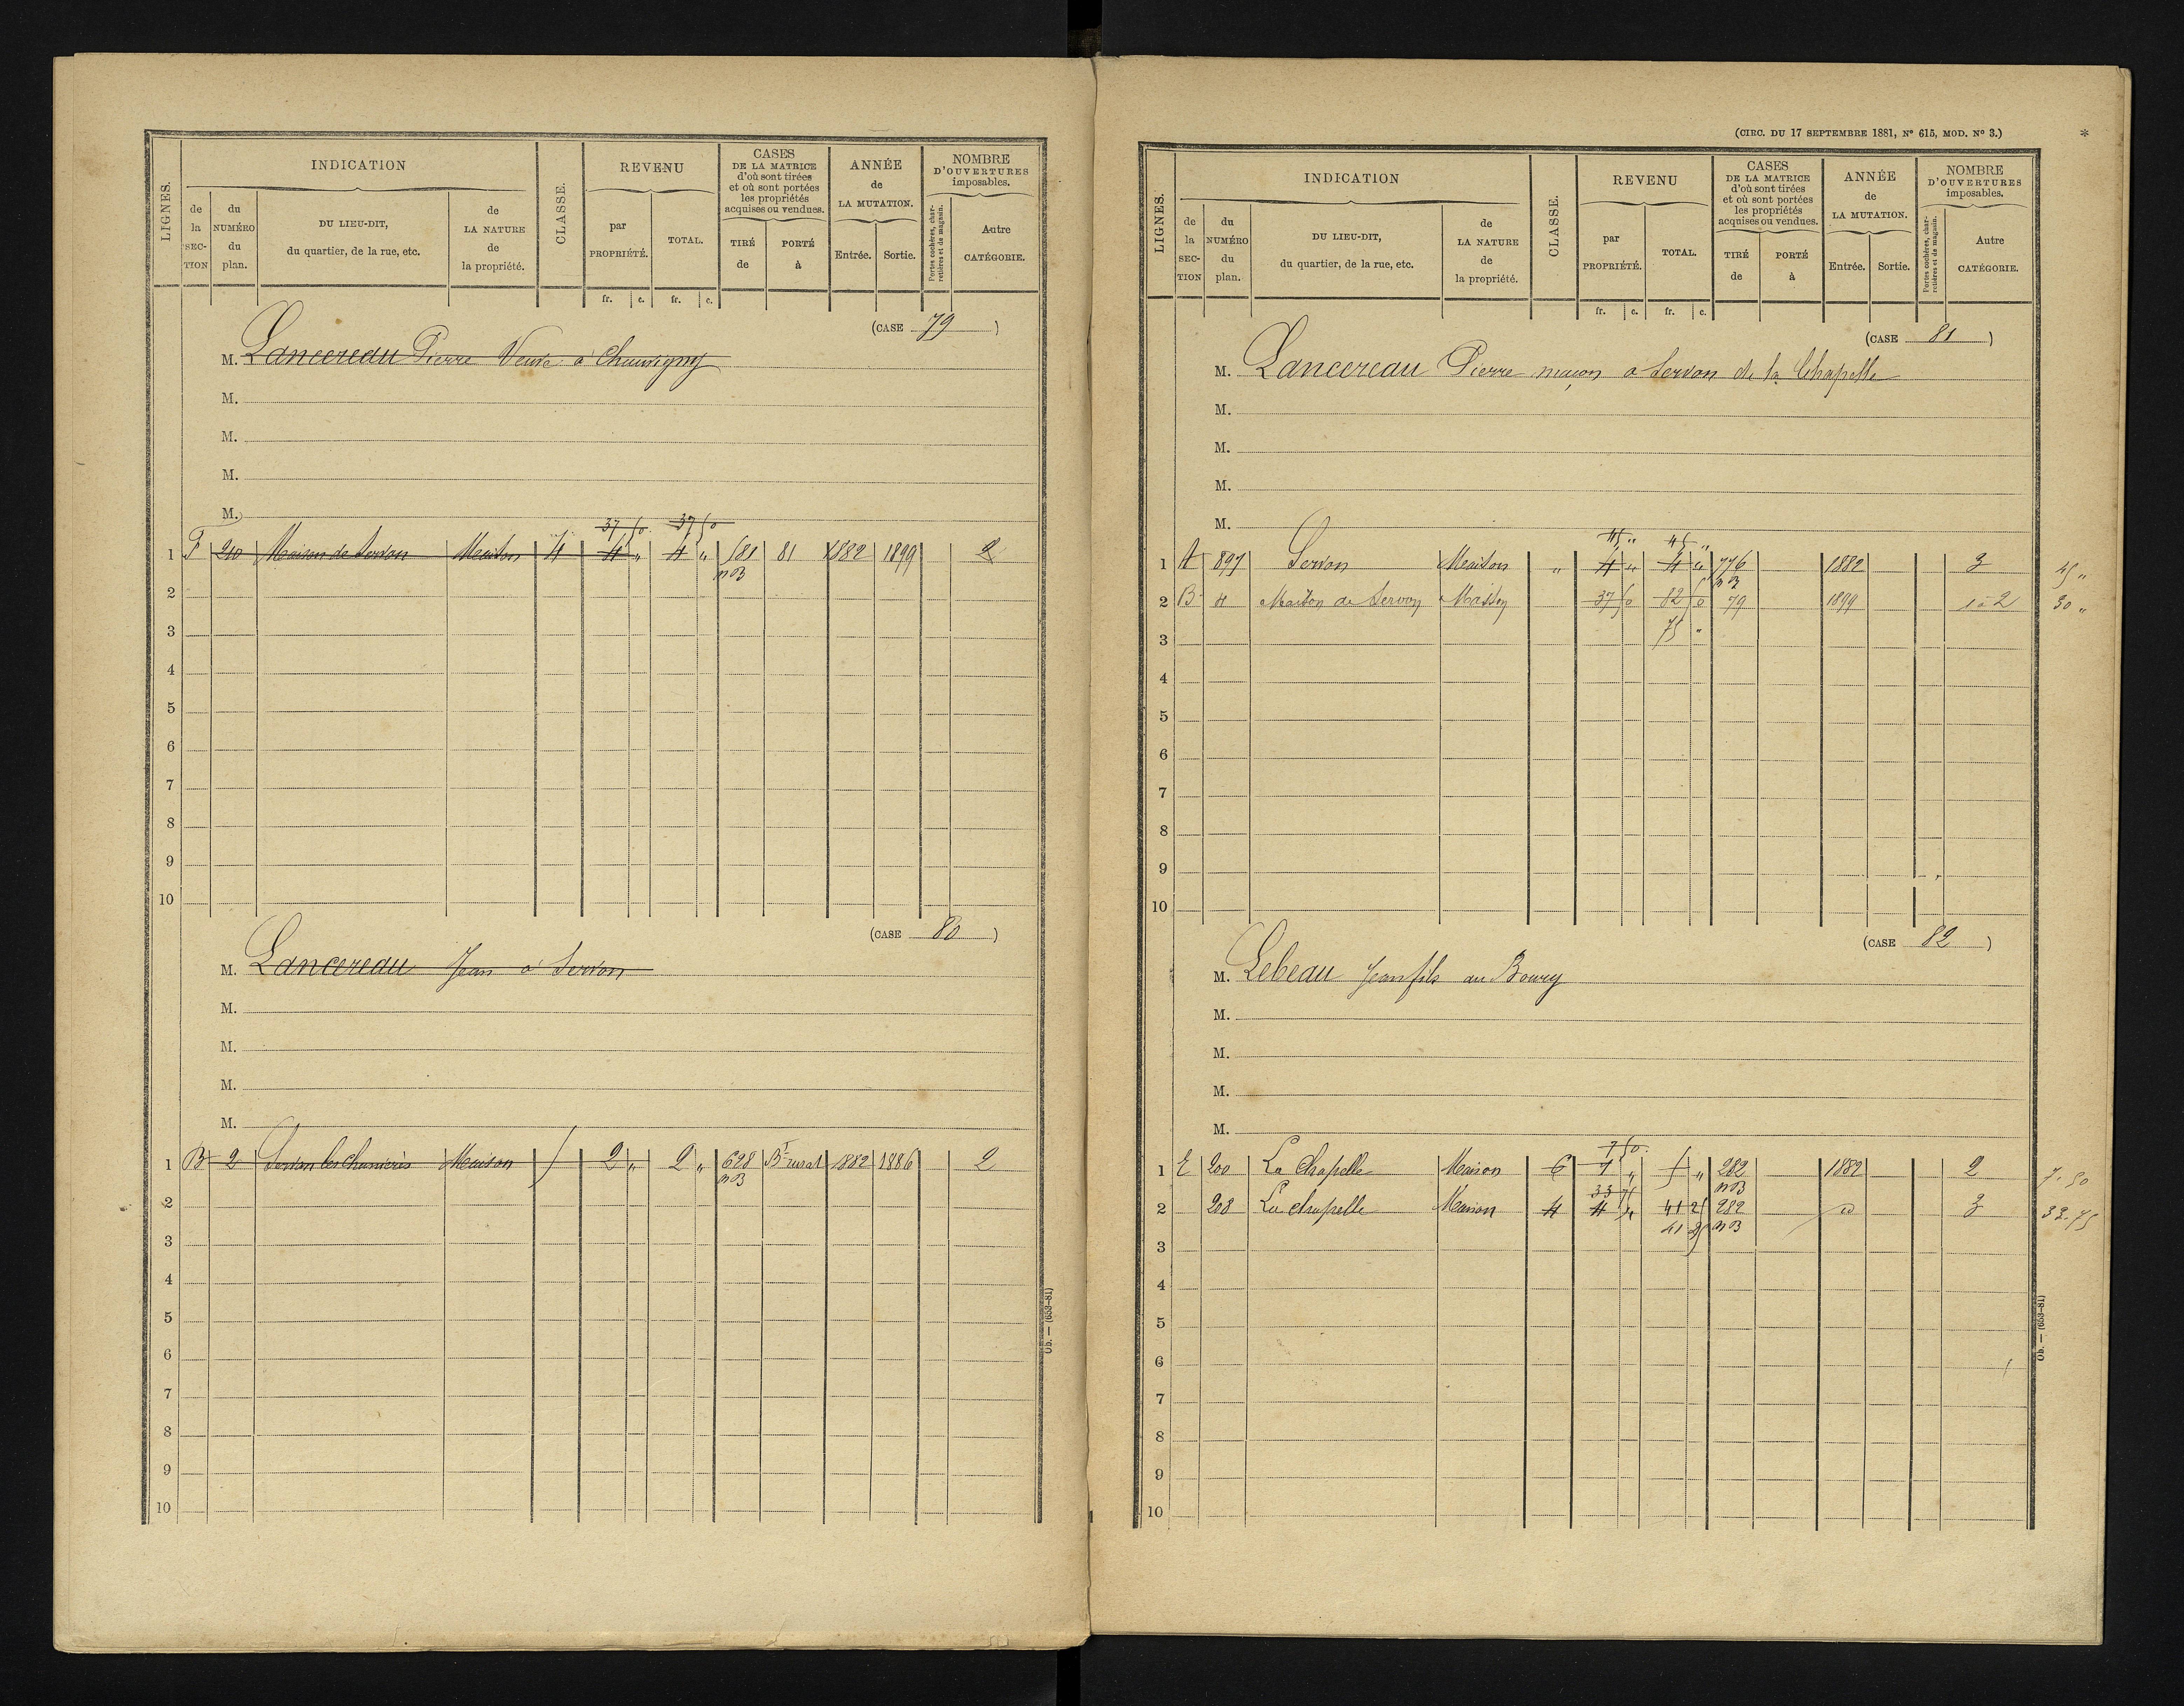 LIGNES.
INDICATION
de la SECTION
du NUMÉRO du plan.
DU LIEU-DIT, du quartier, de la rue, etc.
de LA NATURE de la propriété.
CLASSE.
REVENU
par PROPRIÉTÉ.
TOTAL.
fr. c. fr. c.
CASES DE LA MATRICE d'où sont tirées et où sont portées les propriétés acquises ou vendues.
TIRÉ de
PORTÉ à
ANNÉE de LA MUTATION.
Entrée. Sortie.
NOMBRE D'OUVERTURES imposables.
Portes cochères, charretières et de magasin.
Autre CATÉGORIE.
(CASE 79)
M. Lancereau Pierre Veuve à Chauvigny
M.
M.
M.
M.
37 50 37 50
1 F 210 Maison de Servon Maison 4 4 „ 4 „ 581 81 1882 1899 2
nB
2
3
4
5
6
7
8
9
10
(CASE 80)
M. Lancereau Jean à Servon
M.
M.
M.
M.
1 B 2 Servon Maison 5 2 „ 2 „ 628 Bt rural 1882 1886 2
nB
2
3
4
5
6
7
8
9
10
Ob. — (653-81)
(CIRC. DU 17 SEPTEMBRE 1881, N° 615, MOD. N° 3.) *
LIGNES.
INDICATION
de la SECTION
du NUMÉRO du plan.
DU LIEU-DIT, du quartier, de la rue, etc.
de LA NATURE de la propriété.
CLASSE.
REVENU
par PROPRIÉTÉ.
TOTAL.
fr. c. fr. c.
CASES DE LA MATRICE d'où sont tirées et où sont portées les propriétés acquises ou vendues.
TIRÉ de
PORTÉ à
ANNÉE de LA MUTATION.
Entrée. Sortie.
NOMBRE D'OUVERTURES imposables.
Portes cochères, charretières et de magasin.
Autre CATÉGORIE.
(CASE 81)
M. Lancereau Pierre maçon à Servon de la Chapelle
M.
M.
M.
M.
45 „ 45 „
1 A 897 Servon Maison „ 4 „ 4 „ 776 1882 3 45 „
nB
2 B 4 Maison de Servon Maison 37 50 82 50 79 1899 1 à 2 30 „
3 75 „
4
5
6
7
8
9
10
(CASE 82)
M. Lebeau Jean fils au Bourg
M.
M.
M.
M.
7 50
1 E 200 La Chapelle Maison 6 7 „ 5 „ 282 1882 2 7.50
33 75 nB
2 208 La chapelle Maison 4 4 „ 41 25 282 d° 3 33.75
41 25 nB
3
4
5
6
7
8
9
10
Ob. — (653-81)